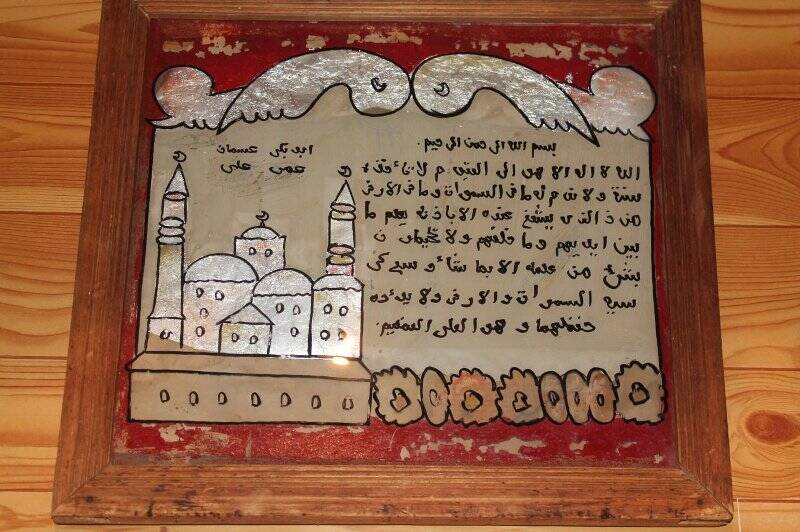 بسم الله الرحمن الرحيم.
ابو بكر عسمان
عمر على
الله لا اله الا هو الى القيوم لا تأخذه
سنة ولا نوم له ما فى السموات وما فى الارض
من ذالذى يشفع عنده الا باذنه يعلم ما
بين ايديهم وما خلفهم ولا يحيطون
بشئ من علمه الا بما شاء وسع كر
سيه السموات والارض ولا يئوده
حفظهما وهو العلى العظيم.